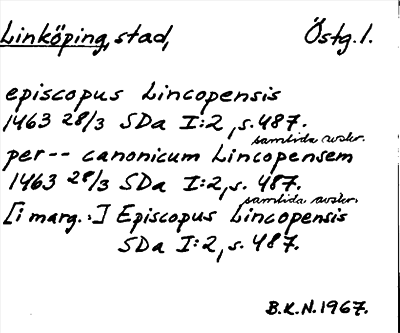 Linköping, stad, Östg. l.
episcopus Lincopensis
1463 28/3 SDa I:2, s. 487.
samtida avskr.
per -- canonicum Lincopensem
1463 28/3 SDa I:2, s. 487.
samtida avskr.
[i marg.:] Episcopus Lincopensis
SDa I:2, s. 487.
B.K.N. 1967.